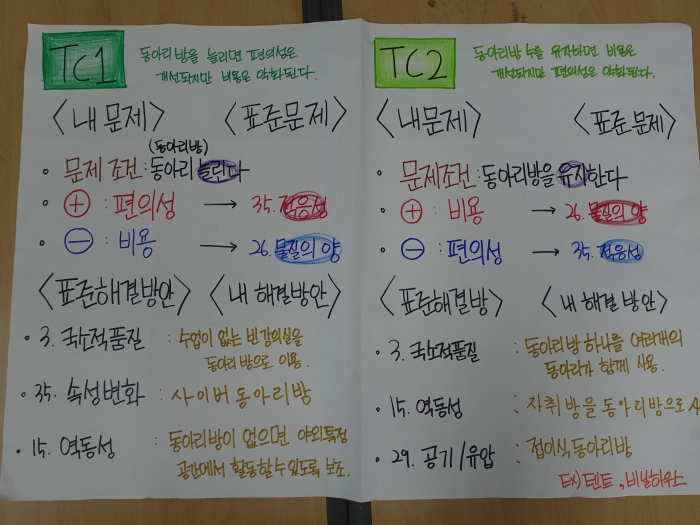 TC1
동아리방을 늘리면 편의성은
개선되지만 비용은 악화된다.
<내 문제> <표준문제>
(동아리방)
• 문제 조건 : 동아리 늘린다
• + : 편의성 → 35. 적응성
• - : 비용 → 26. 물질의 양
<표준해결방안> <내 해결방안>
• 3. 국소적품질 : 수업이 없는 빈강의실을
동아리방으로 이용.
• 35. 속성변화 : 사이버 동아리방
• 15. 역동성 : 동아리방이 없으면 야외특정
공간에서 활동할수있도록 보조.
TC2
동아리방 수를 유지하면 비용은
개선되지만 편의성은 악화된다.
<내문제> <표준 문제>
• 문제조건 : 동아리방을 유지한다
• + : 비용 → 26. 물질의 양
• - : 편의성 → 35. 적응성
<표준해결방> <내 해결 방안>
• 3. 국소적품질 : 동아리방 하나를 여러개의
동아리가 함께 사용.
• 15. 역동성 : 자취방을 동아리방으로
• 29. 공기/유압 : 접이식동아리방
Ex) 텐트, 비닐하우스